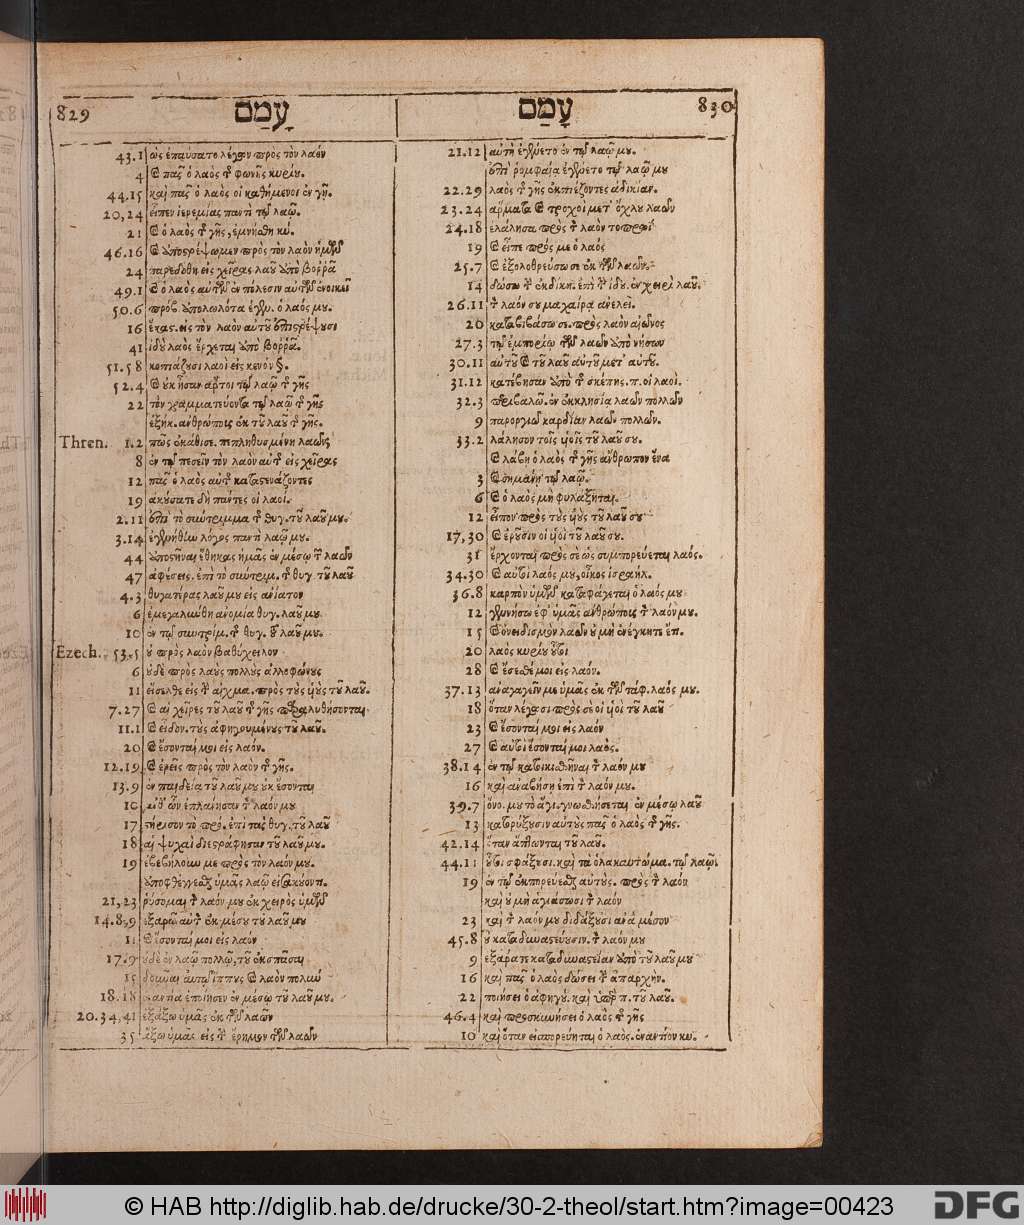 829 עָמַם
43.1 ὡς ἐπαύσατο λέγων πρὸς τὸν λαόν
4 καὶ πᾶς ὁ λαὸς τῆς φωνῆς κυρίου.
44.15 καὶ πᾶς ὁ λαὸς οἱ καθήμενοι ἐν γῇ.
20,24 εἶπεν ἱερεμίας παντὶ τῷ λαῷ.
21 καὶ ὁ λαὸς τῆς γῆς, ἐμνήσθη κύ.
46.16 καὶ ὑποστρέψωμεν πρὸς τὸν λαὸν ἡμῶν
24 παρεδόθη εἰς χεῖρας λαοῦ ὑπὸ βοῤῥᾶ
49.1 καὶ ὁ λαὸς αὐτῶν ἐν πόλεσιν αὐτῶν ἐνοικεῖ
50.6 πρόβ. ὑπολωλότα ἐγέν. ὁ λαός μου.
16 ἕκας. εἰς τὸν λαὸν αὐτοῦ ἐπιστρέψουσι
41 ἰδοὺ λαὸς ἔρχεται ὑπὸ βοῤῥᾶ.
51.58 κοπιάζουσι λαοὶ εἰς κενὸν §.
52.4 καὶ οὐκ ἦσαν ἄρτοι τῷ λαῷ τῆς γῆς
22 τὸν γραμματεύοντα τῷ λαῷ τῆς γῆς
ἑξήκ. ἀνθρώποις ἐκ τοῦ λαοῦ τῆς γῆς.
Thren. 1.2 πῶς ἐκάθισε. πεπληθυσμένη λαῶν
8 ἐν τῷ πεσεῖν τὸν λαὸν αὐτῆς εἰς χεῖρας
12 πᾶς ὁ λαὸς αὐτῆς καταστενάζοντες
19 ἀκούσατε δὴ πάντες οἱ λαοί.
2.11 ἐπὶ τὸ σύντριμμα τῆς θυγ. τοῦ λαοῦ μου.
3.14 ἐγενήθην λόγος παντὶ λαῷ μου.
44 ἔθηκας ἡμᾶς ἐν μέσῳ τῶν λαῶν
47 ἀφέσεις. ἐπὶ τὸ σύντριμ. τῆς θυγ. τοῦ λαοῦ
4.3 θυγατέρας λαοῦ μου εἰς ἀνίατον
6 ἐμεγαλύνθη ἀνομία θυγ. λαοῦ μου
10 ἐν τῷ συντρίμ. τῆς θυγ. τοῦ λαοῦ μου.
Ezech. 53.5 οὐ πρὸς λαὸν βαθύχειλον
6 οὐδὲ πρὸς λαοὺς πολλοὺς ἀλλοφώνους
11 εἴσελθε εἰς τὴν αἰχμα. πρὸς τοὺς υἱοὺς τοῦ λαοῦ.
7.27 καὶ αἱ χεῖρες τοῦ λαοῦ τῆς γῆς παραλυθήσονται
11.1 καὶ εἶδον. τοὺς ἀφηγουμένους τοῦ λαοῦ.
20 καὶ ἔσονταί μοι εἰς λαόν.
12.19 καὶ ἐρεῖς πρὸς τὸν λαὸν τῆς γῆς.
13.9 ἐν παιδείᾳ τοῦ λαοῦ μου οὐκ ἔσονται
10 ἀνθ' ὧν ἐπλάνησαν τὸν λαόν μου
17 στήρισον τὸ πρό. ἐπὶ τὰς θυγ. τοῦ λαοῦ
18 αἱ ψυχαὶ διεστράφησαν τοῦ λαοῦ μου.
19 ἐβεβήλουν με πρὸς τὸν λαόν μου.
ὑμᾶς λαῷ εἰσακούοντ.
21,23 ῥύσομαι τὸν λαόν μου ἐκ χειρὸς ὑμῶν
14.8,9 ἐξαρῶ αὐτὸν ἐκ μέσου τοῦ λαοῦ μου
11 καὶ ἔσονταί μοι εἰς λαόν
17.9 οὐδὲ ἐν λαῷ πολλῷ, τοῦ ἐκσπᾶσαι
15 δοῦναι αὐτῷ ἵππους καὶ λαὸν πολὺν
18.18 ἐναντία ἐποίησεν ἐν μέσῳ τοῦ λαοῦ μου.
20.34,41 ἐξάξω ὑμᾶς ἐκ τῶν λαῶν
35 ἄξω ὑμᾶς εἰς τὴν ἔρημον τῶν λαῶν
עָמַם 830
21.12 αὐτὴ ἐγένετο ἐν τῷ λαῷ μου.
ἐπὶ ῥομφαίᾳ ἐγένετο τῷ λαῷ μου
22.29 λαὸς τῆς γῆς ἐκπιέζοντες ἀδικίαν.
23.24 ἅρματα καὶ τροχοὶ μετ' ὄχλου λαῶν
24.18 ἐλάλησα πρὸς τὸν λαὸν τοπρωῒ
19 καὶ εἶπε πρός με ὁ λαός
25.7 καὶ ἐξολοθρεύσω σε ἐκ τῶν λαῶν.
14 δώσω τὴν ἐκδίκη. ἐπὶ τὴν ἰδου. ἐν χειρὶ λαοῦ.
26.11 τὸν λαόν σου μαχαίρᾳ ἀνελεῖ.
20 καταβιβάσω σε. πρὸς λαὸν αἰῶνος
27.3 τῷ ἐμπορίῳ τῶν λαῶν ὑπὸ νήσων
30.11 αὐτοῦ καὶ τοῦ λαοῦ αὐτοῦ μετ' αὐτοῦ.
31.12 κατέβησαν ὑπὸ τῆς σκέπης. π. οἱ λαοὶ.
32.3 περιβαλῶ. ἐν ἐκκλησίᾳ λαῶν πολλῶν
9 παροργιῶ καρδίαν λαῶν πολλῶν.
33.2 λάλησον τοῖς υἱοῖς τοῦ λαοῦ σου.
καὶ λάβῃ ὁ λαὸς τῆς γῆς ἄνθρωπον ἕνα
3 καὶ σημάνῃ τῷ λαῷ.
6 καὶ ὁ λαὸς μὴ φυλάξηται.
12 εἶπον πρὸς τοὺς υἱοὺς τοῦ λαοῦ σου
17,30 καὶ ἐροῦσιν οἱ υἱοὶ τοῦ λαοῦ σου.
31 ἔρχονται πρὸς σε ὡς συμπορεύεται λαός.
34.30 καὶ αὐτοὶ λαός μου, οἶκος ἰσραήλ.
36.8 καρπὸν ὑμῶν καταφάγεται ὁ λαός μου
12 γεννήσω ἐφ' ὑμᾶς ἀνθρώπους τὸν λαόν μου.
15 καὶ ὀνειδισμὸν λαῶν οὐ μὴ ἀνέγκητε ἔτ.
20 λαὸς κυρίου οὗτοι
28 καὶ ἔσεσθέ μοι εἰς λαόν.
37.13 ἀναγαγεῖν με ὑμᾶς ἐκ τῶν τάφ. λαός μου.
18 ὅταν λέγωσι πρὸς σὲ οἱ υἱοὶ τοῦ λαοῦ
23 καὶ ἔσονταί μοι εἰς λαόν
27 καὶ αὐτοὶ ἔσονταί μοι λαός.
38.14 ἐν τῷ κατοικισθῆναι τὸν λαόν μου
16 καὶ ἀναβήσῃ ἐπὶ τὸν λαόν μου.
39.7 ὄνο. μου τὸ ἅγι. γνωσθήσεται ἐν μέσῳ λαοῦ
13 κατορύξουσιν αὐτοὺς πᾶς ὁ λαὸς τῆς γῆς.
42.14 ὅταν ἅπτωνται τοῦ λαοῦ.
44.11 οὗτοι σφάξουσι. καὶ τὰ ὁλοκαυτώμα. τῷ λαῷ.
19 ἐν τῷ ἐκπορεύεσθαι αὐτούς. πρὸς τὸν λαόν
καὶ οὐ μὴ ἁγιάσωσι τὸν λαόν
23 καὶ τὸν λαόν μου διδάξουσι ἀνὰ μέσον
45.8 οὐ καταδυναστεύουσιν. τὸν λαόν μου
9 ἐξάρατε καταδυναστείαν ὑπὸ τοῦ λαοῦ μου
16 καὶ πᾶς ὁ λαὸς δώσει τὴν ἀπαρχὴν.
22 ποιήσει ὁ ἀφηγού. καὶ ὑπὲρ π. τοῦ λαοῦ.
46.4 καὶ προσκυνήσει ὁ λαὸς τῆς γῆς
10 καὶ ὅταν εἰσπορεύηται ὁ λαὸς. ἐναντίον κυ.
© HAB http://diglib.hab.de/drucke/30-2-theol/start.htm?image=00423
DFG